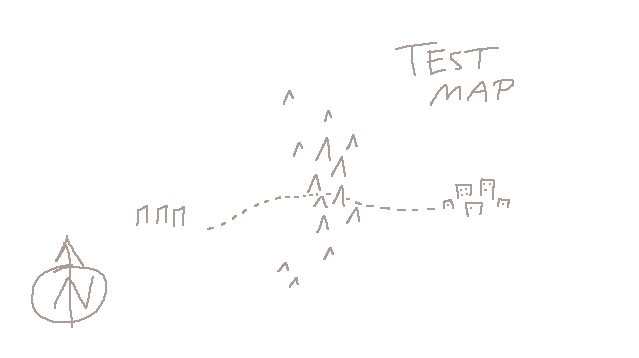 TEST
MAP
N